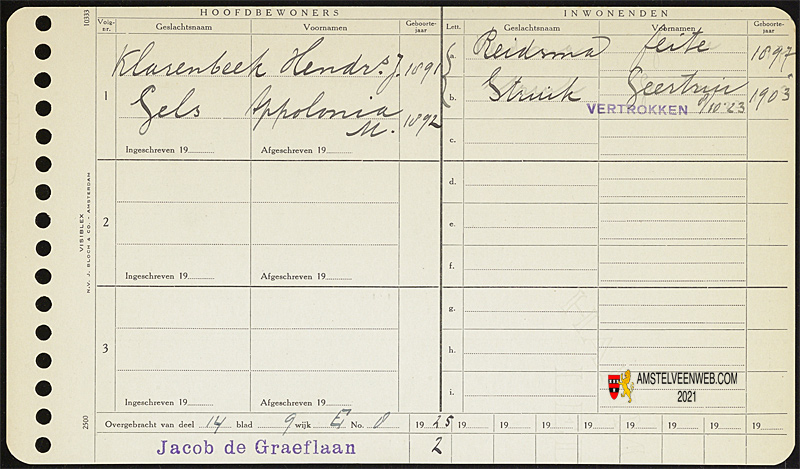 HOOFDBEWONERS
INWONENDEN
10333
Volg-nr.
Geslachtsnaam
Voornamen
Geboorte-jaar
Lett.
Geslachtsnaam
Voornamen
Geboorte-jaar
1
Klarenbeek Hendrs. J. 1891
Gels Appolonia
M. 1892
Ingeschreven 19
Afgeschreven 19
a. Reidsma Feite 1897
b. Struik Geertrui 1903
VERTROKKEN 10-23
c.
2
Ingeschreven 19
Afgeschreven 19
d.
e.
f.
3
Ingeschreven 19
Afgeschreven 19
g.
h.
i.
VISIBLEX
N.V. J. BLOCH & CO. - AMSTERDAM
2500
AMSTELVEENWEB.COM
2021
Overgebracht van deel 14 blad 9 wijk E No. 8
19 25 19 19 19 19 19 19 19 19
Jacob de Graeflaan
2